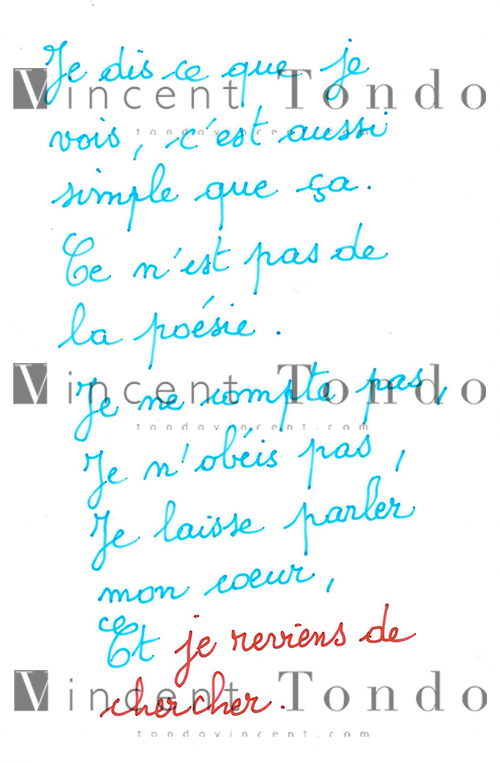 Je dis ce que je
Vincent Tondo
vois, c'est aussi
tondovincent.com
simple que ça.
Ce n'est pas de
la poésie.
Vincent Tondo
Je ne compte pas,
tondovincent.com
Je n'obéis pas,
Je laisse parler
mon coeur,
ce
Et je reviens de
Vincent Tondo
chercher.
tondovincent.com